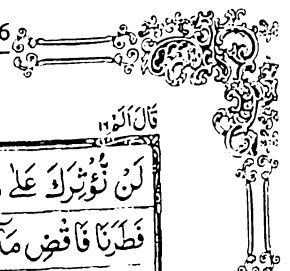 6
قَالَ اَلَمۡ ١٦
لَنۡ نُّؤۡثِرَكَ عَلٰى
فَطَرَنَا فَاقۡضِ مَاۤ